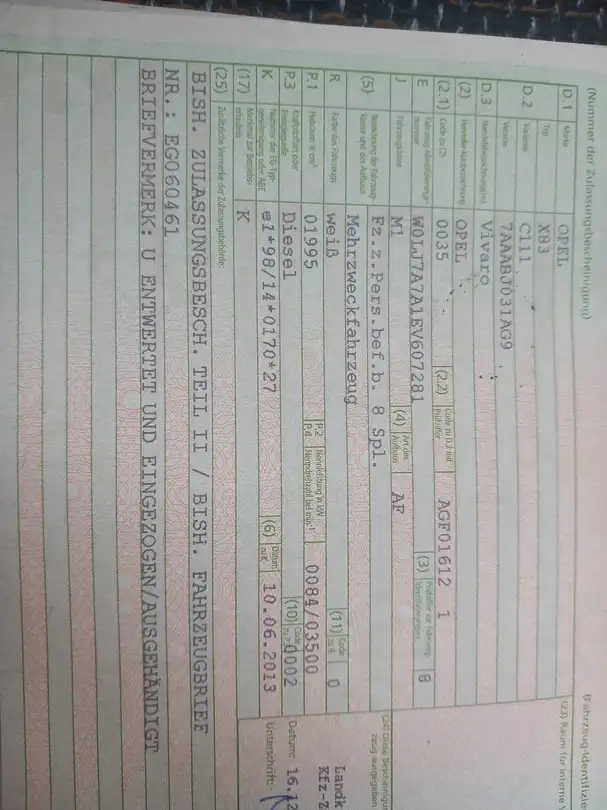 (Nummer der Zulassungsbescheinigung)
(Fahrzeug-Identifizie
D.1 Marke OPEL
(23) Raum für interne
Typ X83
D.2 Variante C111
Version 7AAABJ031AG9
D.3 Handelsbezeichnung(en) Vivaro
(2) Hersteller-Kurzbezeichnung OPEL
(2.1) Code zu (2) 0035 (2.2) Code zu D.2 mit Prüfziffer AGF01612 1
E Fahrzeug-Identifizierungsnummer W0LJ7A7A1EV607281 (3) Prüfziffer zur Fahrzeug-Identifizierungsnr. 8
J Fahrzeugklasse M1 (4) Art des Aufbaus AF
(5) Bezeichnung der Fahrzeugklasse und des Aufbaus Fz.z.Pers.bef.b. 8 Spl.
Mehrzweckfahrzeug
(24) Diese Bescheinigu
zeug ausgegeben
R Farbe des Fahrzeugs weiß (11) Code zu R 0
Landk
Kfz-Z
P.1 Hubraum in cm³ 01995 P.2 P.4 Nennleistung in kW Nenndrehzahl bei min⁻¹ 0084/03500
P.3 Kraftstoffart oder Energiequelle Diesel (10) Code zu P.3 0002
Datum: 16.12
K Nummer der EG-Typgenehmigung oder ABE e1*98/14*0170*27 (6) Datum zu K 10.06.2013
Unterschrift:
(17) Merkmal zur Betriebserlaubnis K
(25) Zusätzliche Vermerke der Zulassungsbehörde:
BISH. ZULASSUNGSBESCH. TEIL II / BISH. FAHRZEUGBRIEF
NR.: EG060461
BRIEFVERMERK: U ENTWERTET UND EINGEZOGEN/AUSGEHÄNDIGT